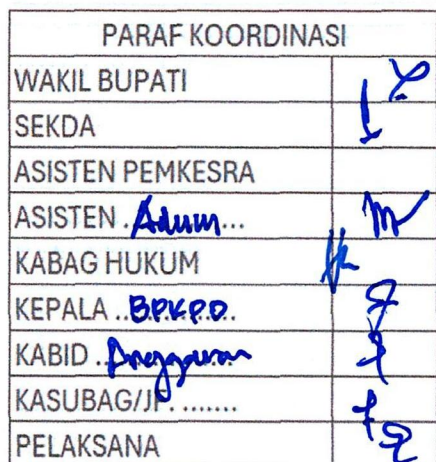 PARAF KOORDINASI
WAKIL BUPATI
SEKDA
ASISTEN PEMKESRA
ASISTEN .Adum...
KABAG HUKUM
KEPALA ..BPKPD.......
KABID ..Anggaran
KASUBAG/JF. .......
PELAKSANA